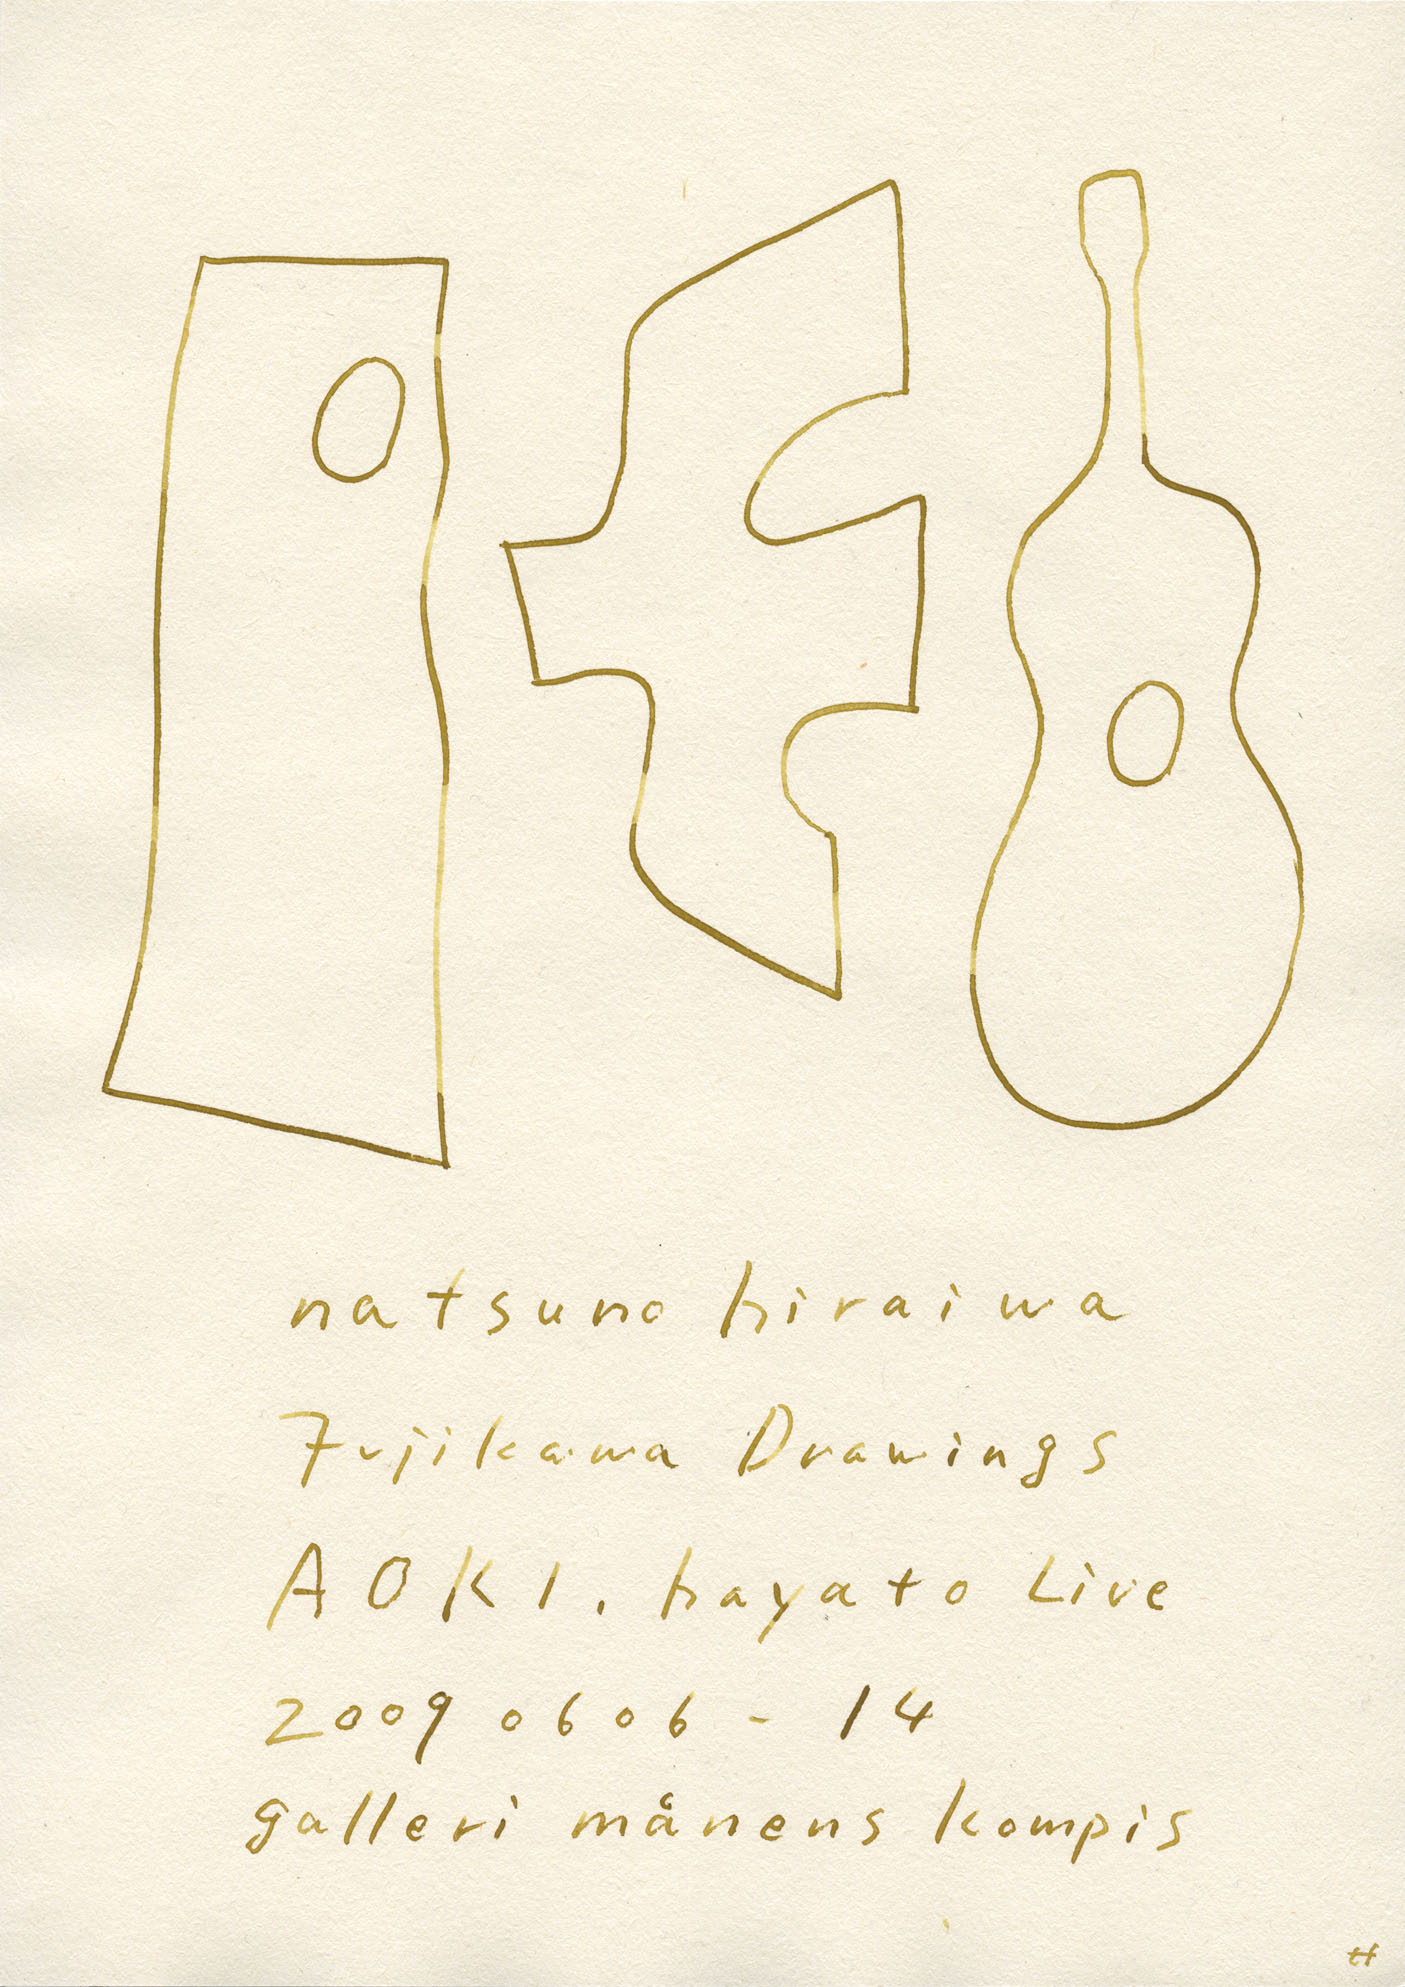 natsuno hiraiwa
Fujikawa Drawings
AOKI, hayato Live
2009 0606 - 14
galleri månens kompis
tt